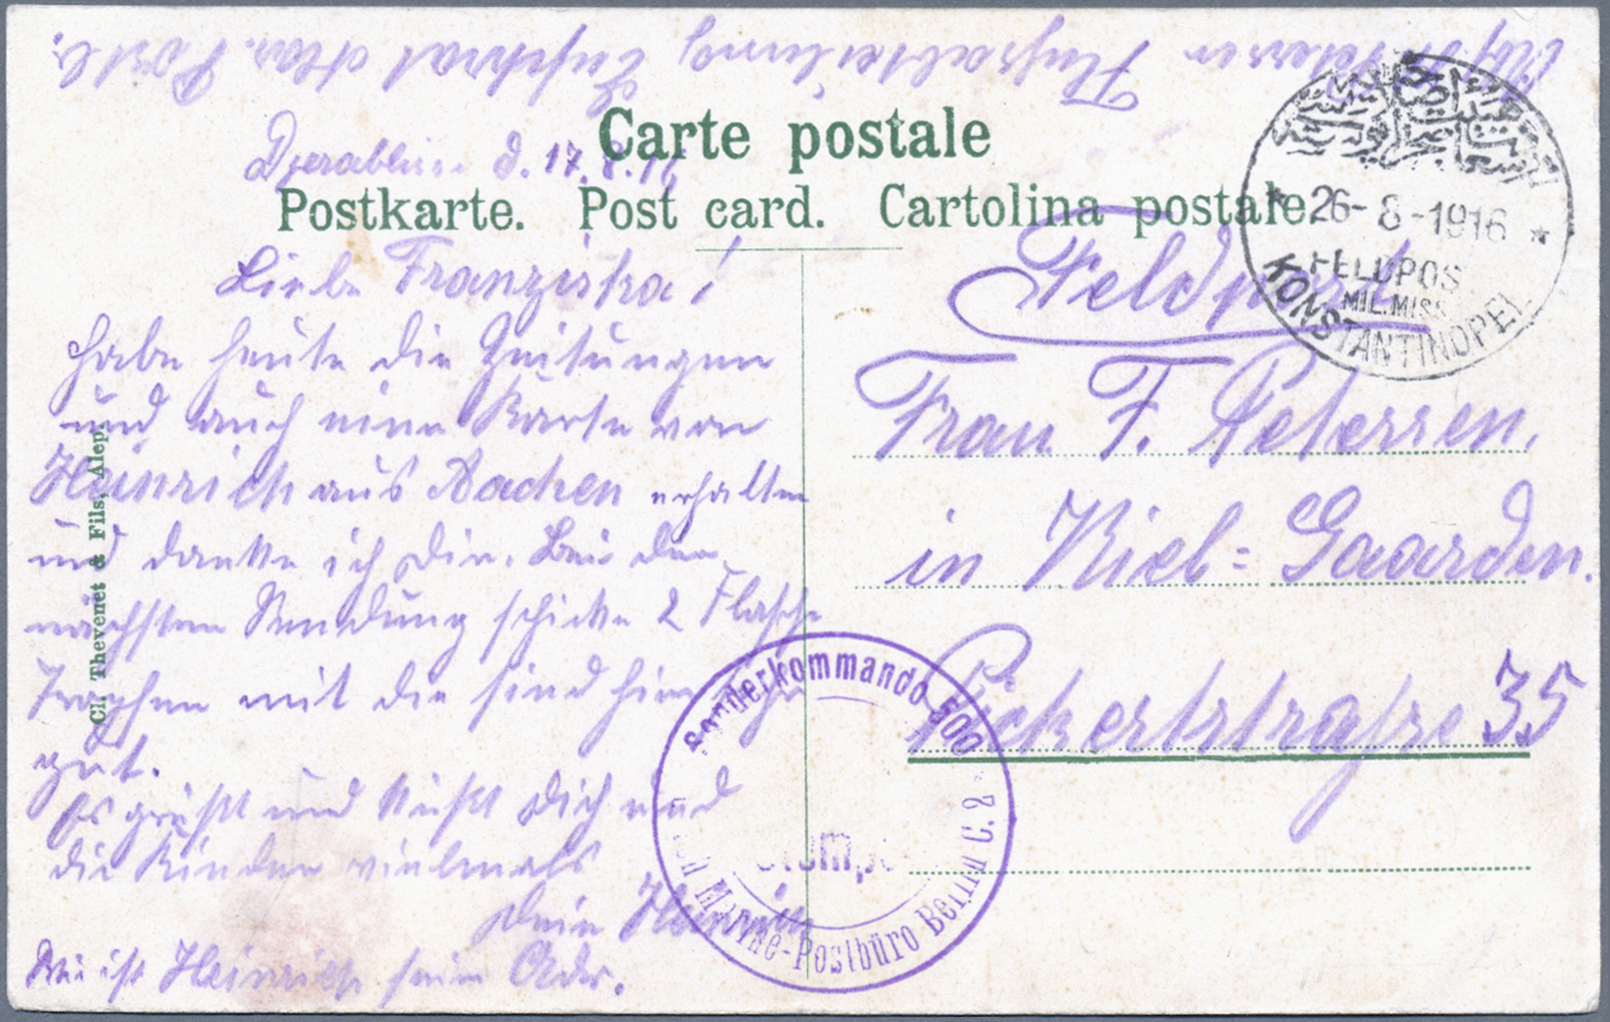 Flussabteilung Euphrat
Carte postale
Djerablus d. 17.8.16
Postkarte. Post card. Cartolina postale
26-8-1916
FELDPOS
MIL.MISS
KONSTANTINOPEL
Liebe Franziska!
habe heute die Zeitungen
und auch eine Karte von
Heinrich aus Aachen erhalten
und danke ich Dir. Bei der
nächsten Sendung schicke 2 Flasche
Tropfen mit die sind hier sehr
gut.
Es grüßt und küßt Dich und
die Kinder vielmals
Dein Heinrich
Wie ist Heinrich seine Adr.
Feldpost
Frau F. Petersen,
in Kiel-Gaarden.
35
Sonderkommando 500
Marine-Postbüro Berlin C.2
Cl. Thevenet & Fils, Alep.